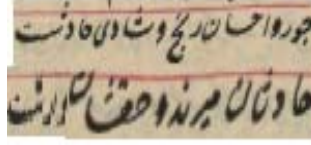 جور و احسان رنج و شادی حادثست
حادثان میرند و حقشان وارثست